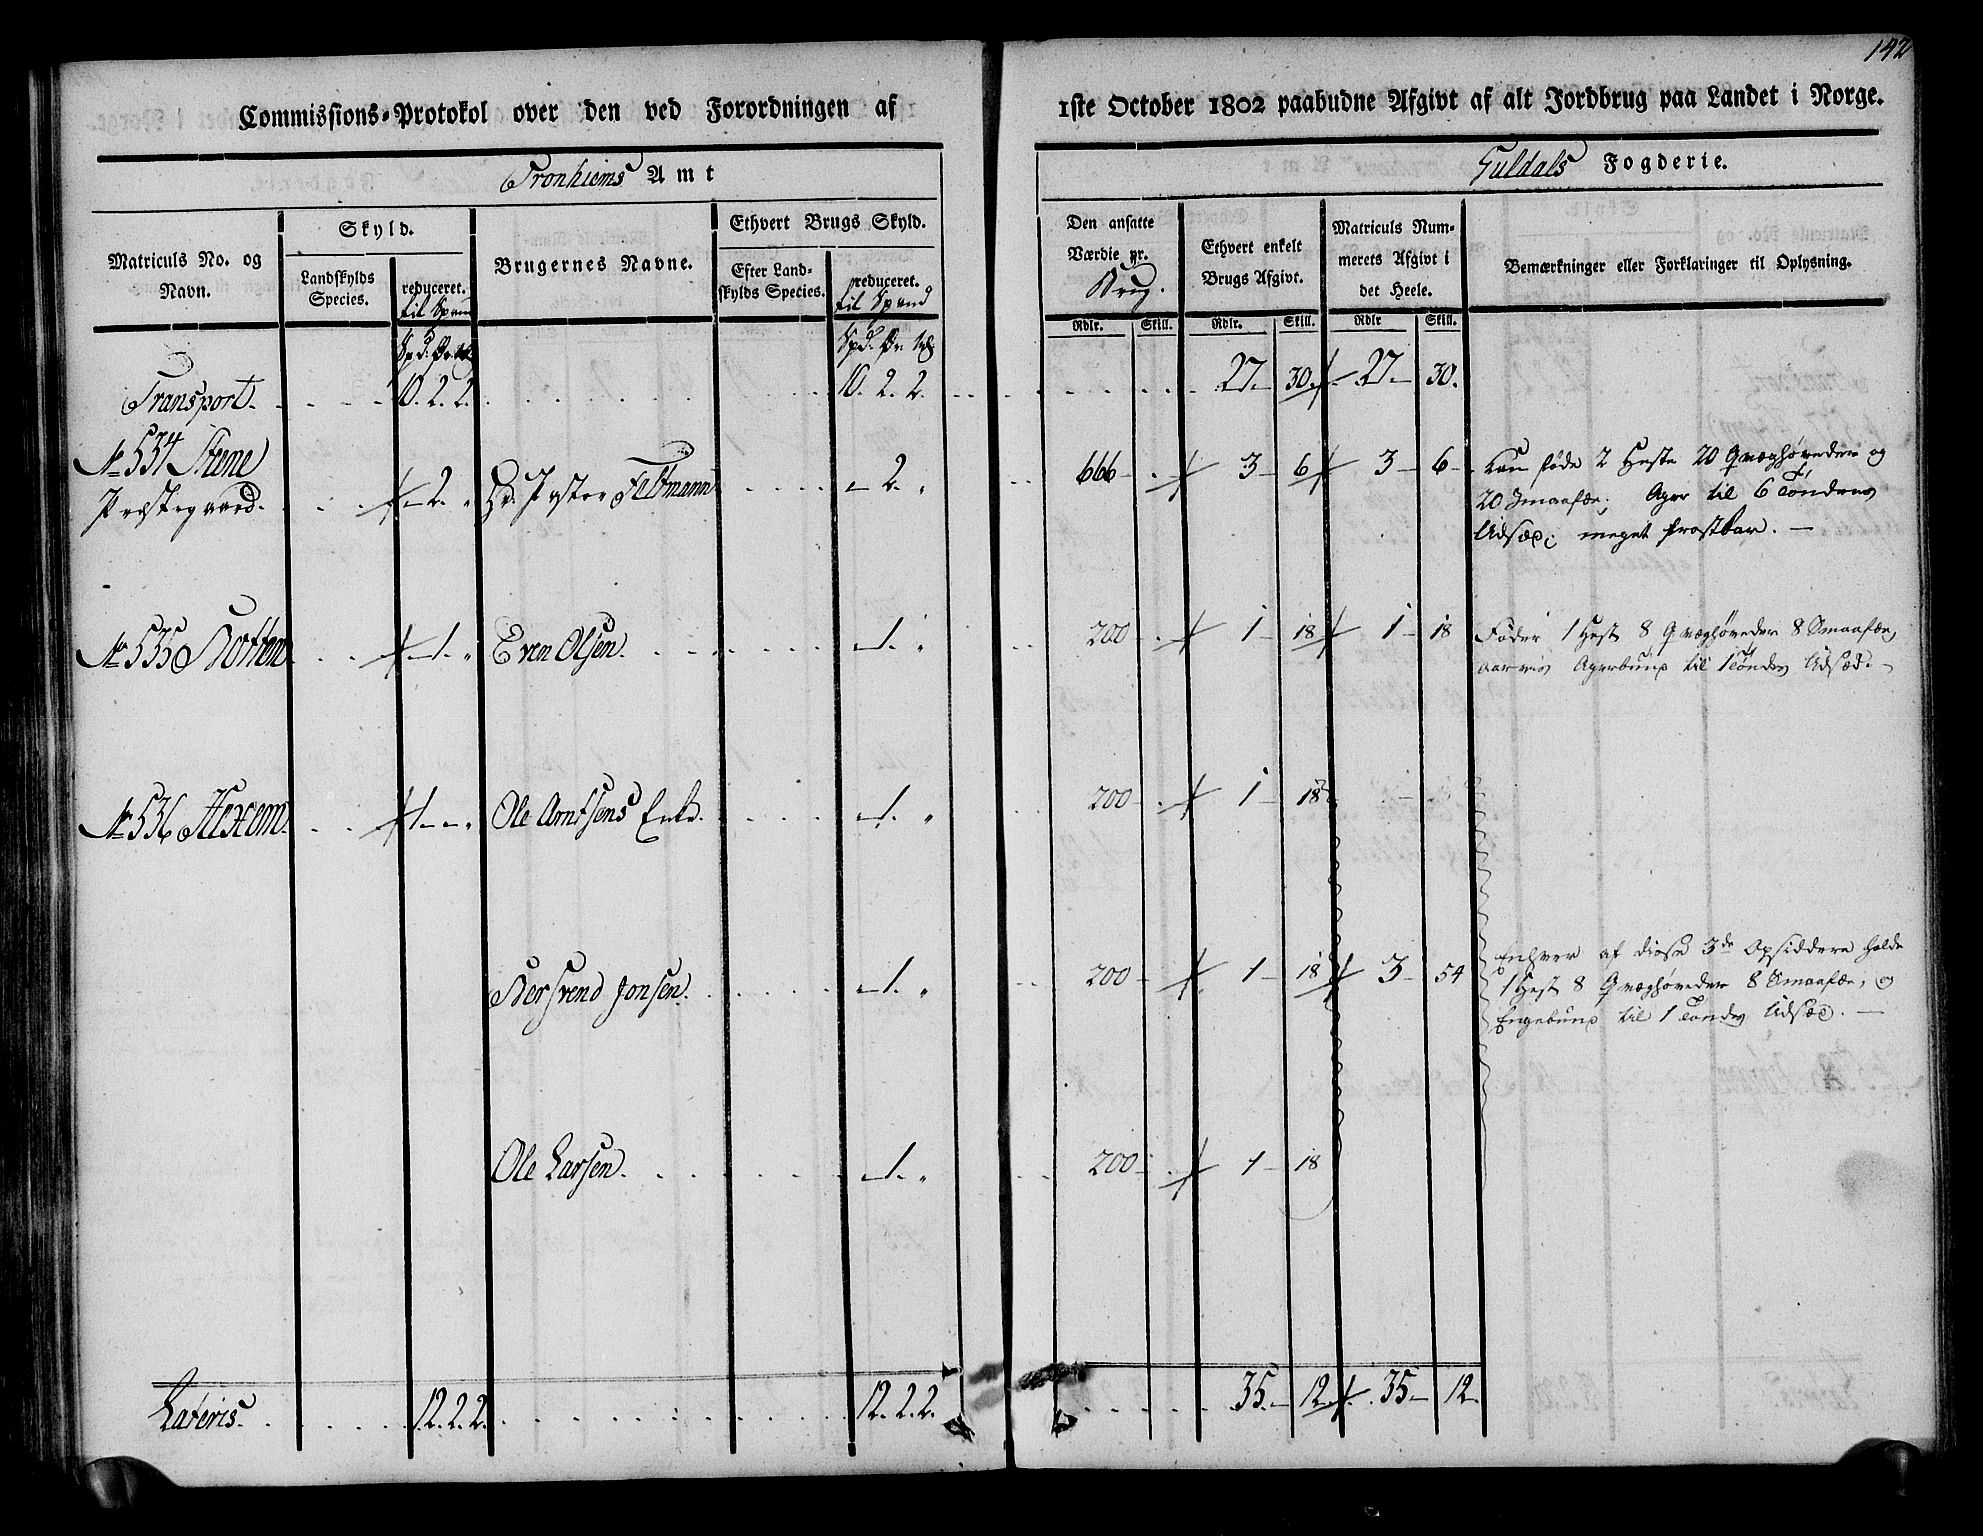 142
Commissions-Protokol over den ved Forordningen af 1ste October 1802 paabudne Afgivt af alt Jordbrug paa Landet i Norge.
Tronhiems Amt
Guldals Fogderie.
Matriculs No. og Navn.
Skyld.
Landskylds Species.
reduceret. til Spand
Brugernes Navne.
Ethvert Brugs Skyld.
Efter Landskylds Species.
reduceret. til Spand
Den ansatte Værdie pr. Brug.
Ethvert enkelt Brugs Afgivt.
Matriculs Nummerets Afgivt i det Heele.
Bemærkninger eller Forklaringer til Oplysning.
Rdlr. Skill. Rdlr. Skill. Rdlr Skill.
Transport. 10. 2. 2. 10. 2. 2. 27. 30. 27. 30.
No 534 Steene Præstegaard. 2. " Hr. Pastor Feltmann 2. " 666 3 6 3 6 kan føde 2 Heste 20 Qvæghøveder og
20 Smaafæe, Ager til 6 Tønders
Udsæd; meget frostbar.
No 535 1. " Even Olsen. 1. " 200 1 18 1 18 Føder 1 Hest 8 Qvæghøveder 8 Smaafæe,
Agerbund til 1 Tøndes Udsæd.
No 536 1. " Ole Arntsens Enke. 1. " 200 1 18
Bersvend Jonsen. 1. " 200 1 18 3 54 Enhver af disse 3de Opsiddere holde
1 Hest 8 Qvæghøveder 8 Smaafæe, og
Engebund til 1 Tøndes Udsæd.
Ole Larsen. 1. " 200 1 18
Lateris. 12. 2. 2. 12. 2. 2. 35. 12. 35 12.